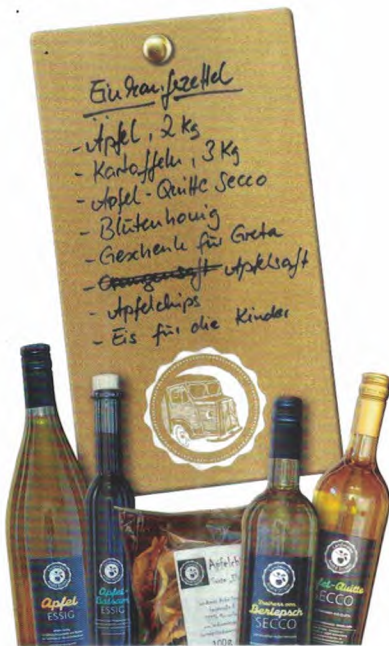 Einkaufszettel
- Äpfel, 2 kg
- Kartoffeln, 3 kg
- Apfel-Quitte Secco
- Blütenhonig
- Geschenk für Greta
- Orangensaft Apfelsaft
- Apfelchips
- Eis für die Kinder
Apfel
ESSIG
Apfel-
Balsam
ESSIG
Apfelch
100g
Berlepsch
SECCO
fel-Quitte
ECCO